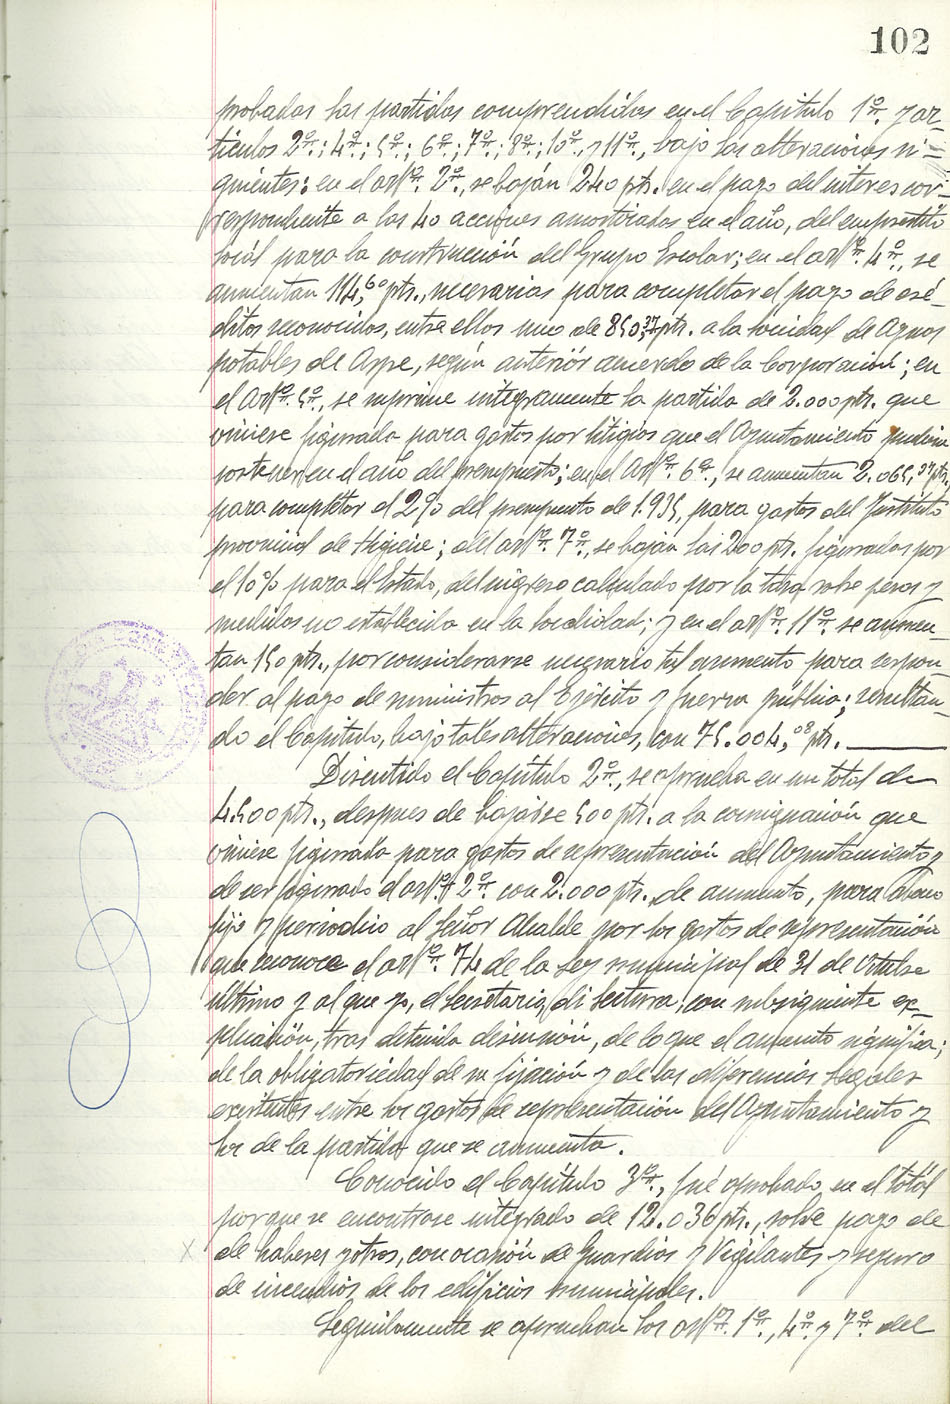 102
probadas las partidas comprendidas en el Capítulo 1º. y ar-
tículos 2º.; 4º.; 5º.; 6º.; 7º.; 8º.; 10º. y 11º., bajo las alteraciones si-
guientes: en el artº. 2º., se baján 240 pts. en el pago del interes cor-
respondiente a las 40 acciones amortizadas en el año, del empréstito
social para la construcción del Grupo Escolar; en el artº. 4º., se
aumentan 114,60 pts., necesarias para completar el pago de cré-
ditos reconocidos, entre ellos uno de 850,37 pts. a la sociedad de Aguas
potables de Aspe, según anterior acuerdo de la Corporación; en
el Artº. 5º., se suprime integramente la partida de 2.000 pts. que
viniese figurada para gastos por litigios que el Ayuntamiento pudiera
sostener en el año del presupuesto; en el Artº. 6º., se aumentan 2.065, pts.
para completar el 2% del presupuesto de 1.935, para gastos del Instituto
provincial de Higiene; del artº. 7º., se baján las 200 pts. figuradas por
el 10% para el Estado, del ingreso calculado por la tasa sobre pesas y
medidas no establecida en la localidad; y en el artº. 11º. se aumen-
tan 150 pts., por considerarse necesario tal aumento para respon-
der al pago de suministros al Ejército y fuerza pública; resultan-
do el Capítulo, bajo tales alteraciones, con 75.004,08 pts.
Discutido el Capítulo 2º., se aprueba en un total de
4.500 pts., despues de bajarse 500 pts. a la consignación que
viniese figurada para gastos de representación del Ayuntamiento y
de ser figurado el artº. 2º. con 2.000 pts. de aumento, para abono
fijo y periodico al Señor Alcalde por los gastos de representación
que reconoce el artº. 74 de la Ley municipal de 31 de Octubre
último y al que yo, el Secretario, di lectura, con subsiguiente ex-
plicación, tras detenida discusión, de lo que el aumento significa;
de la obligatoriedad de su fijación y de las diferencias legales
existentes entre los gastos de representación del Ayuntamiento y
los de la partida que se aumenta.
Conocido el Capítulo 3º., fué aprobado en el total
porque se encontrase integrado de 12.036 pts., sobre pago de
de haberes y otros, con ocasión de Guardias y Vigilantes y seguro
de incendios de los edificios municipales.
Seguidamente se aprueban los artº. 1º., 4º. y 7º. del